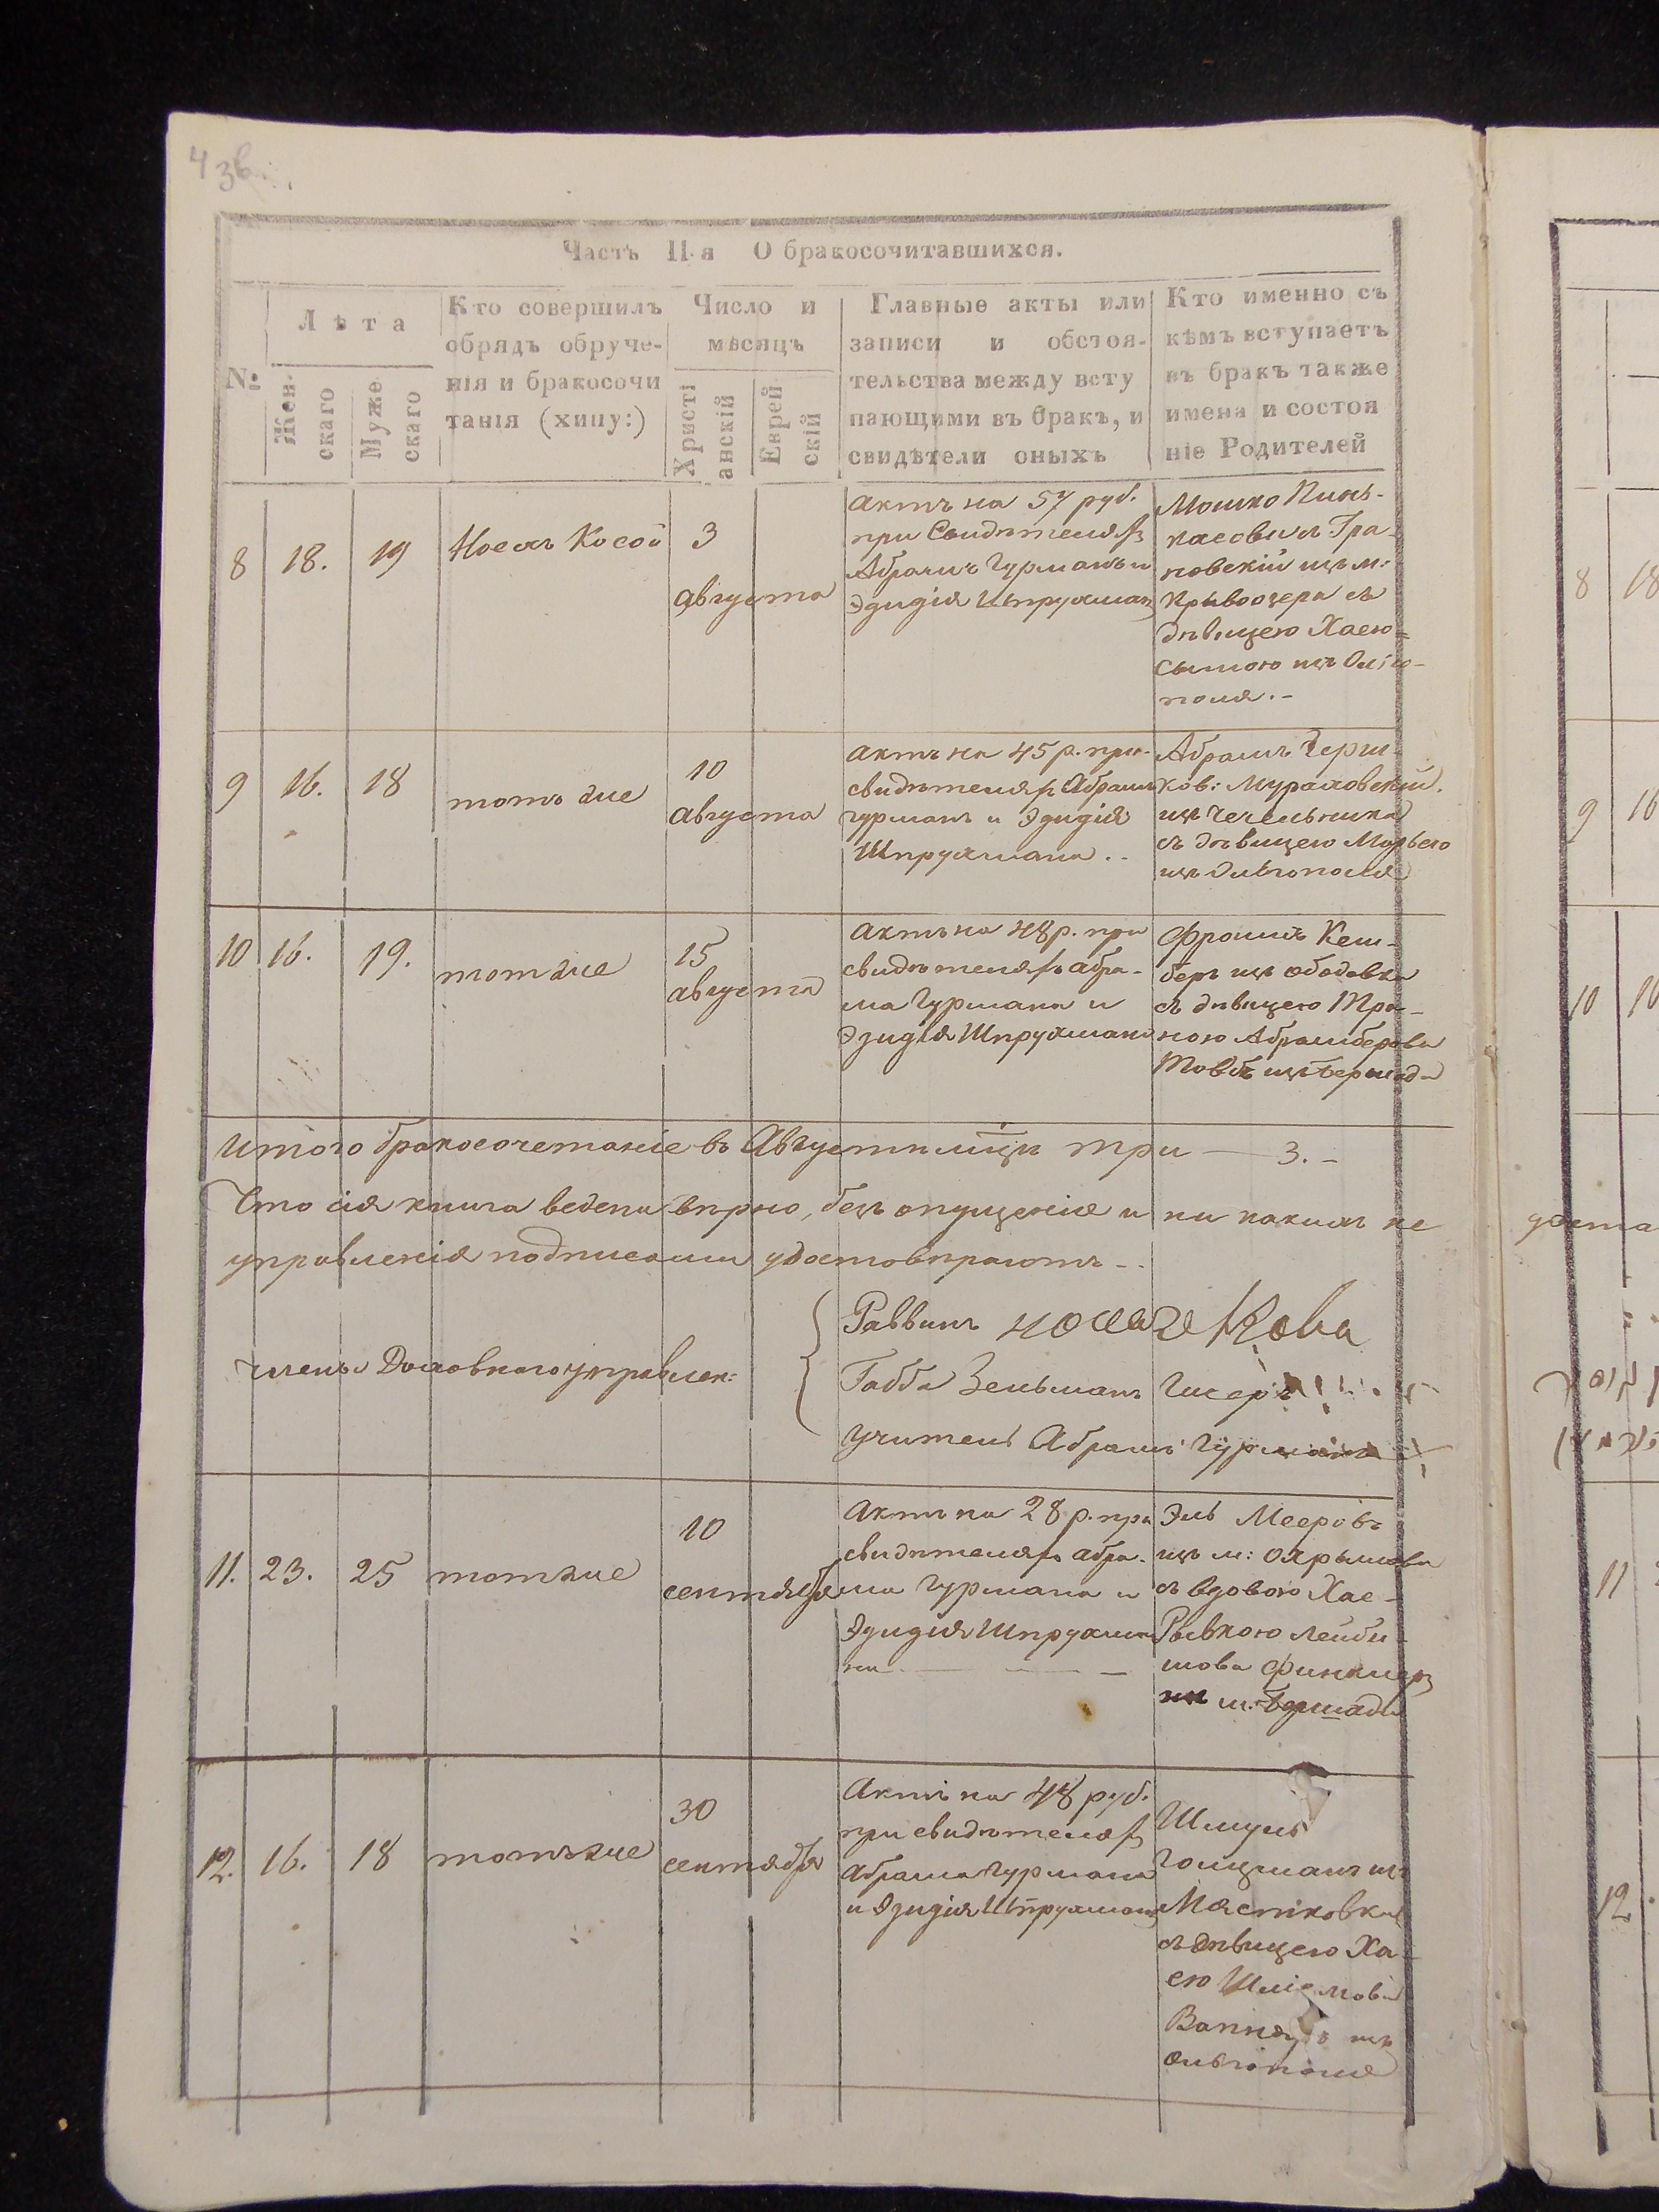 4 зв.
Часть II-я О бракосочитавшихся.
№
Лѣта
Женскаго
Мужескаго
Кто совершилъ
обрядъ обруче-
нія и бракосочи
танія (хипу:)
Число и
мѣсяцъ
Христіанскій
Еврейскій
Главные акты или
записи и обстоя-
тельства между всту
пающими въ бракъ, и
свидѣтели оныхъ
Кто именно съ
кѣмъ вступаетъ
въ бракъ также
имена и состоя
ніе Родителей
8
18.
19
Носаъ Косой
3
августа
Актъ на 57 руб.
при Свидѣтеляхъ
Абрамъ Гурманъ и
Эзидія Шпрухман
Мошко Пинь-
касовичъ Гра-
новскій изъ м:
Кривоозера съ
дѣвицею Хаею=
Сымою изъ Ольго-
поля.-
9
16.
18
тотъ же
10
августа
Актъ на 45 р. при
свидѣтеляхъ Абрамъ
Гурманъ и Эзидія
Шпрухмана..
Абрамъ Герш-
ков: Мураховскій.
изъ Чечельника
съ дѣвицею Марьею
изъ Ольгополя
10
16.
19.
тотже
15
августа
Актъ на 48 р. при
свидѣтеляхъ Абра-
ма Гурмана и
Эзидія Шпрухмана
Фроимъ Кеш-
беръ изъ Ободовки
съ дѣвицею Тра-
ною Абрамберова
изъ Бершади
Итого бракосочетаніе въ Августѣ м-цѣ три — 3.-
Что сія книга ведена вѣрно, безъ опущенія и ни какихъ не
управленія подписами удостовѣраютъ -..
члены Духовнаго управлен:
Раввинъ
Габбa Зельманъ
Учитель Абрамъ Гурманъ
11.
23.
25
тотже
10
сентября
Актъ на 28 р. при
свидѣтеляхъ Абра-
ма Гурмана и
Эзидія Шпрухма
на. — — —
Эль Мееровъ
изъ м:
съ вдовою Хае-
Рывкою Лейби-
шова
м: Бершади
12.
16.
18
тотъже
30
сентября
Актъ на 48 руб.
при свидѣтеляхъ
Абрама Гурмана
и Эзидія Шпрухман
Шмуль
Гоцманъ изъ
Мястковки
съ дѣвицею Ха-
ею Шліомова
изъ
Ольгополя
8
18
9
16
10
16
11
12